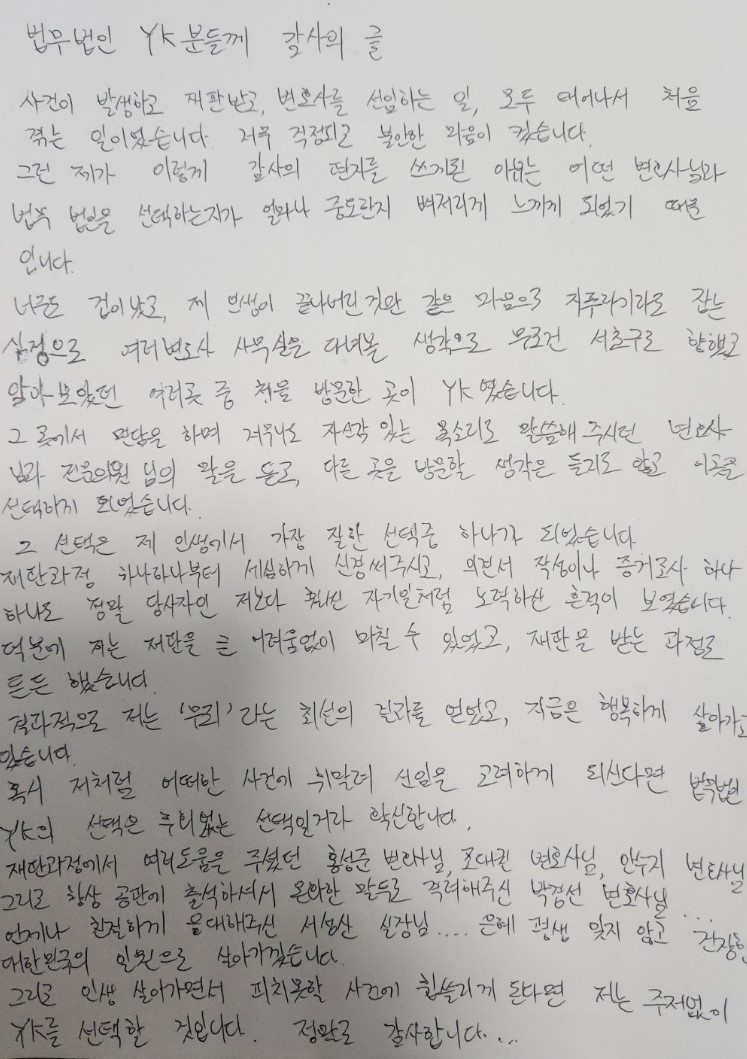 법무법인 YK분들께 감사의 글
사건이 발생하고 재판받고, 변호사를 선임하는 일, 모두 태어나서 처음
겪는 일이었습니다. 너무 걱정되고 불안한 마음이 컸습니다.
그런 제가 이렇게 감사의 편지를 쓰게된 이유는 어떤 변호사님과
법무 법인을 선택하는지가 얼마나 중요한지 뼈저리게 느끼게 되었기 때문
입니다.
너무도 겁이났고, 제 인생이 끝나버린것만 같은 마음으로 지푸라기라도 잡는
심정으로 여러변호사 사무실을 다녀볼 생각으로 무조건 서초구로 향했고
알아 보았던 여러곳 중 처음 방문한 곳이 YK였습니다.
그 곳에서 면담을 하며 너무나도 자신감 있는 목소리로 말씀해 주시던 변호사
님과 전문위원 님의 말을 듣고, 다른 곳을 방문할 생각은 들지도 않고 이곳을
선택하게 되었습니다.
그 선택은 제 인생에서 가장 잘한 선택중 하나가 되었습니다
재판과정 하나하나부터 세심하게 신경써주시고, 의견서 작성이나 증거조사 하나
하나도 정말 당사자인 저보다 훨씬 자기일처럼 노력하신 흔적이 보였습니다.
덕분에 저는 재판을 큰 어려움없이 마칠 수 있었고, 재판을 받는 과정도
든든 했습니다.
결과적으로 저는 '무죄'라는 최선의 결과를 얻었고, 지금은 행복하게 살아가고
있습니다.
혹시 저처럼 어떠한 사건에 휘말려 선임을 고려하게 되신다면 법무법인
YK의 선택은 후회없는 선택일거라 확신합니다.
재판과정에서 여러도움을 주셨던 홍성준 변호사님, 조대진 변호사님, 안수지 변호사님
그리고 항상 공판에 출석하셔서 온화한 말투로 격려해주신 박경선 변호사님...
언제나 친절하게 응대해주신 서성산 실장님.... 은혜 평생 잊지 않고 건장한
대한민국의 일원으로 살아가겠습니다.
그리고 인생 살아가면서 피치못할 사건에 휩쓸리게 된다면 저는 주저없이
YK를 선택할 것입니다. 정말로 감사합니다...